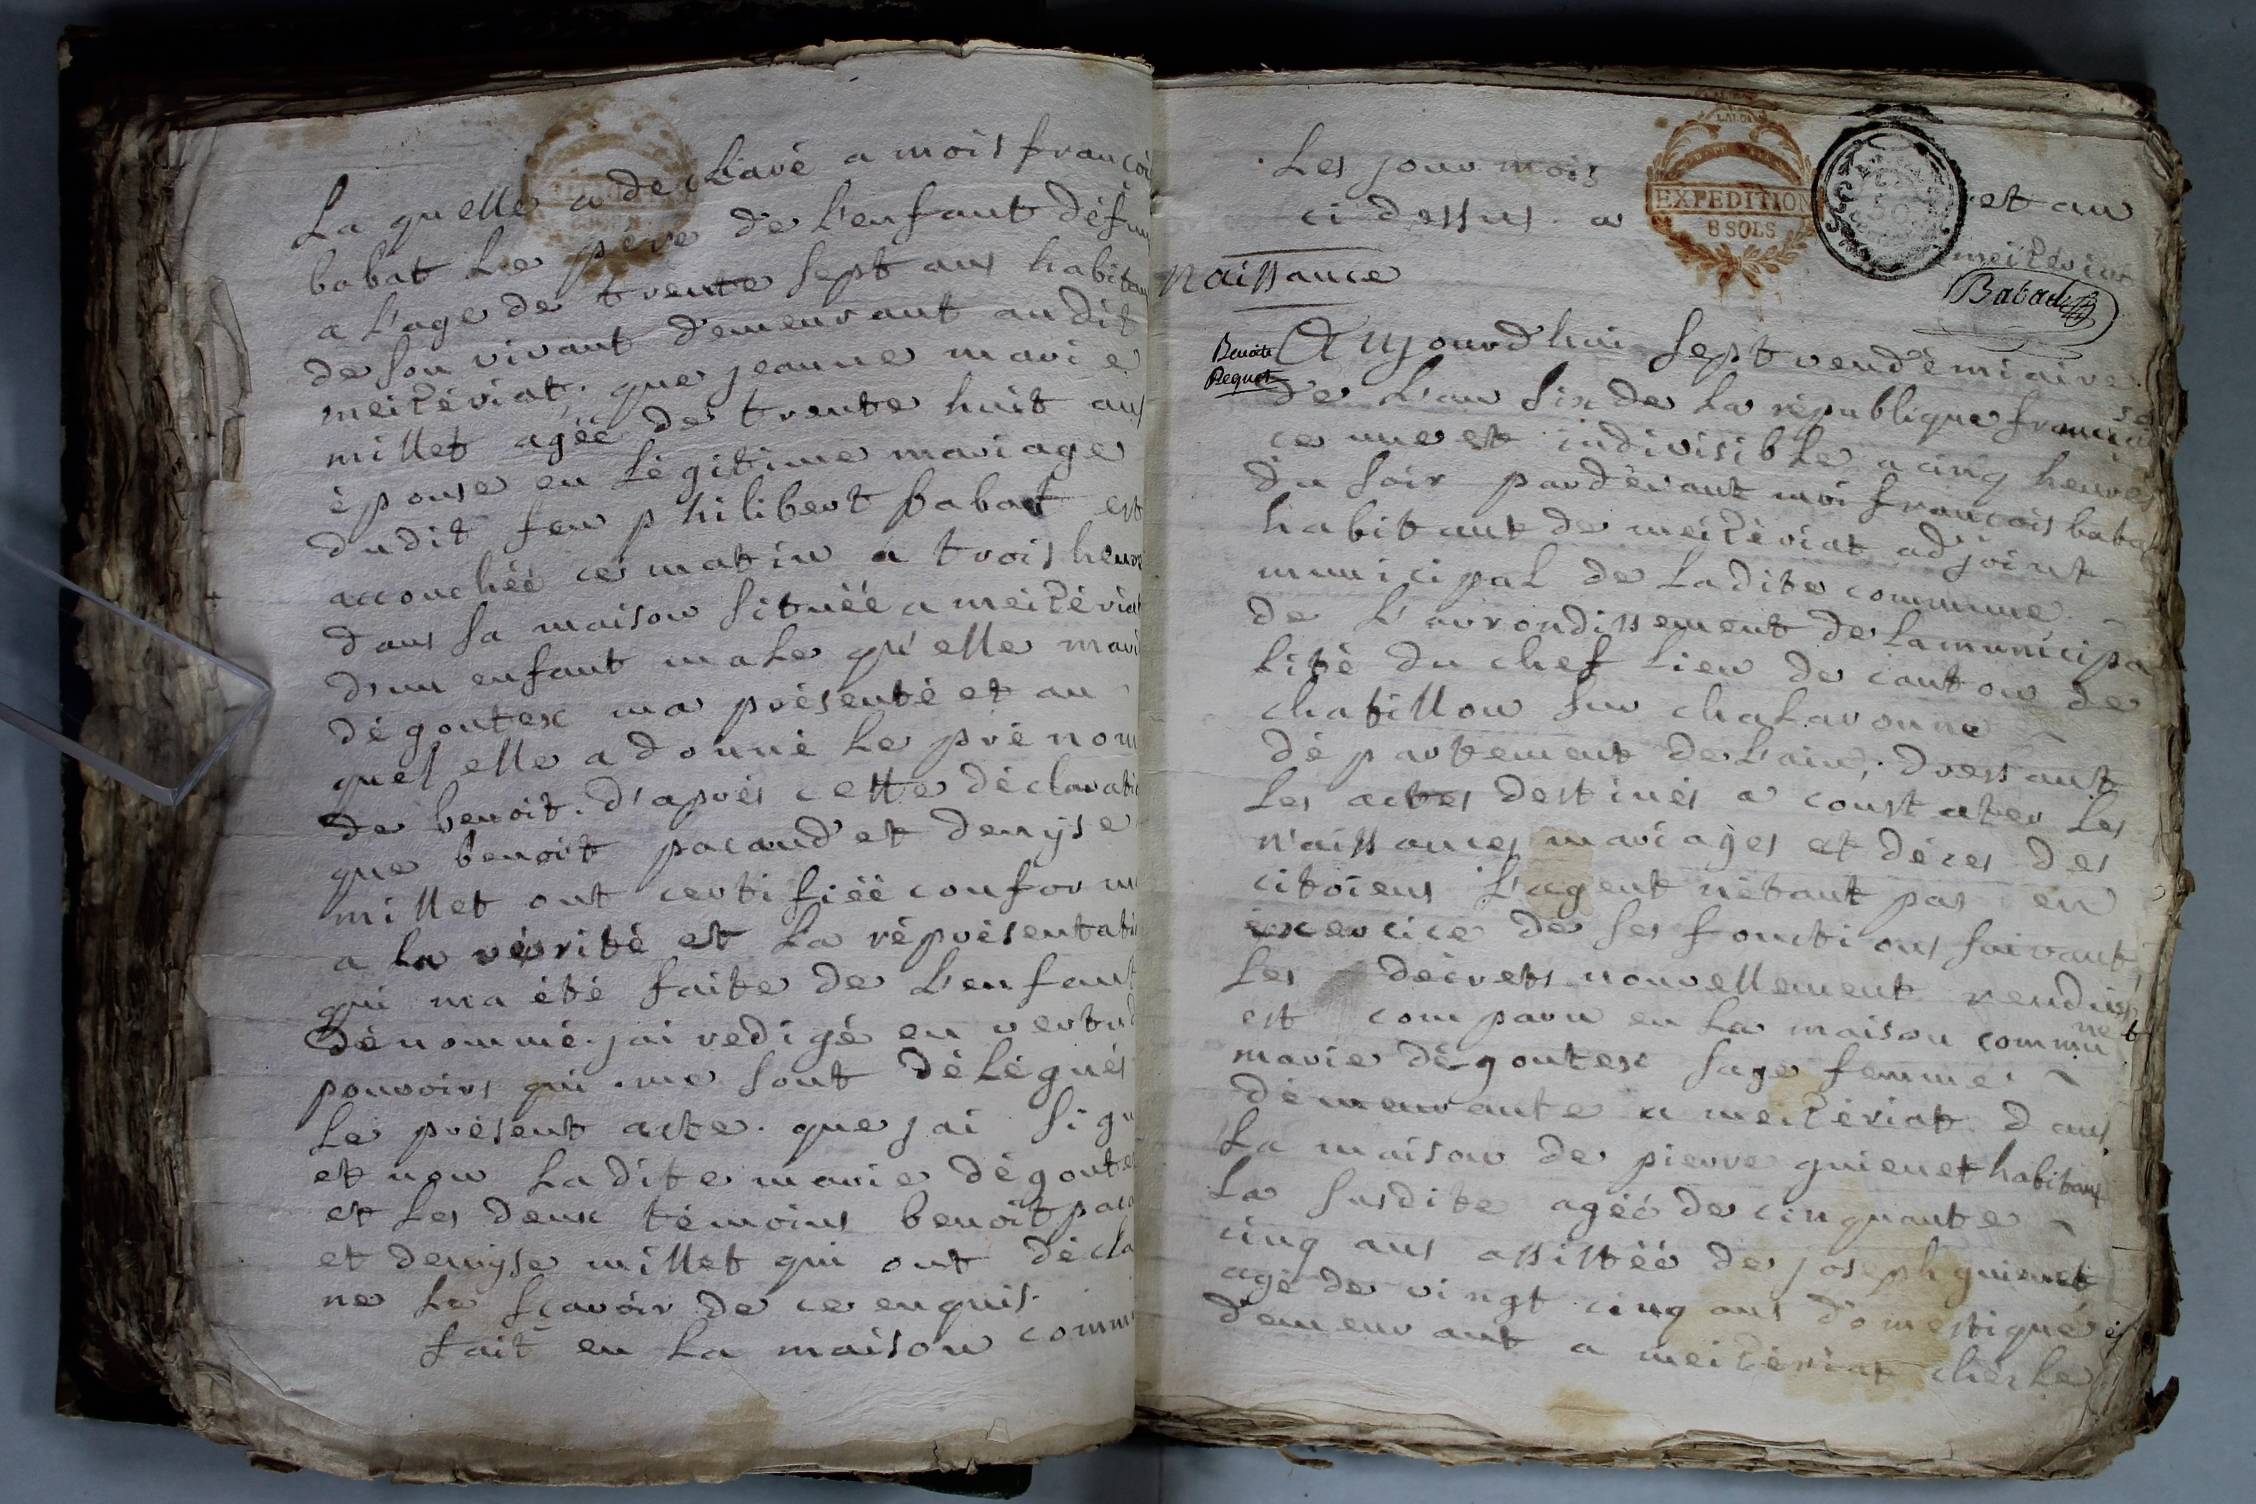 La quelle a declaré a mois françoi
babat le père de l'enfant défun
a l'age de trente sept ans habitan
de son vivant demeurant audit
meitériat. que jeanne marie
millet agéé de trente huit ans
épouse en légitime mariage
dudit feu philibert babat est
accouchéé ce matin a trois heure
dans sa maison situéé a meitériat
d'un enfant male qu'elle mari
dégoutex ma présenté et au
quel elle a donné le prénom
de benoit. d'après cette déclarati
que benoit pacaud et denyse
millet ont certifiéé conform
a la vérité et la réprésentati
qui ma été faite de l'enfant
dénommé. jai redigé en vertu d
pouvoirs qui me sont délégués
le présent acte. que jai sign
et non ladite marie dégoute
et les deux témoins benoit paca
et denyse millet qui ont décla
ne le sçavoir de ce enquis.
fait en la maison comm
Les jour mois et an
ci dessus. a
EXPEDITION
8 SOLS
meitériat
Babad
naissance
Benoite
Requet
Aujourd'hui sept vendémiaire
de l'an six de la république françai
se
ce une et indivisible a cinq heures
du soir pardevant moi françois baba
habitant de meitériat adjoint
municipal de ladite commune
de l'arrondissement de la municipa
lité du chef lieu de canton de
chatillon sur chalaronne
département de l'ain, dressant
les actes destinés a constater les
naissances mariages et déces des
citoiens l'agent nétant pas en
exercice de ses fonctions suivant
les décrets nouvellement rendus
est comparu en la maison commu
ne
marie dégoutex sage femme
demeurante a meitériat. dans
la maison de pierre guienet habitant
la susdite agéé de cinquante
cinq ans assistéé de joseph guienet
agé de vingt cinq ans domestique
demeurant a meitériat chés le